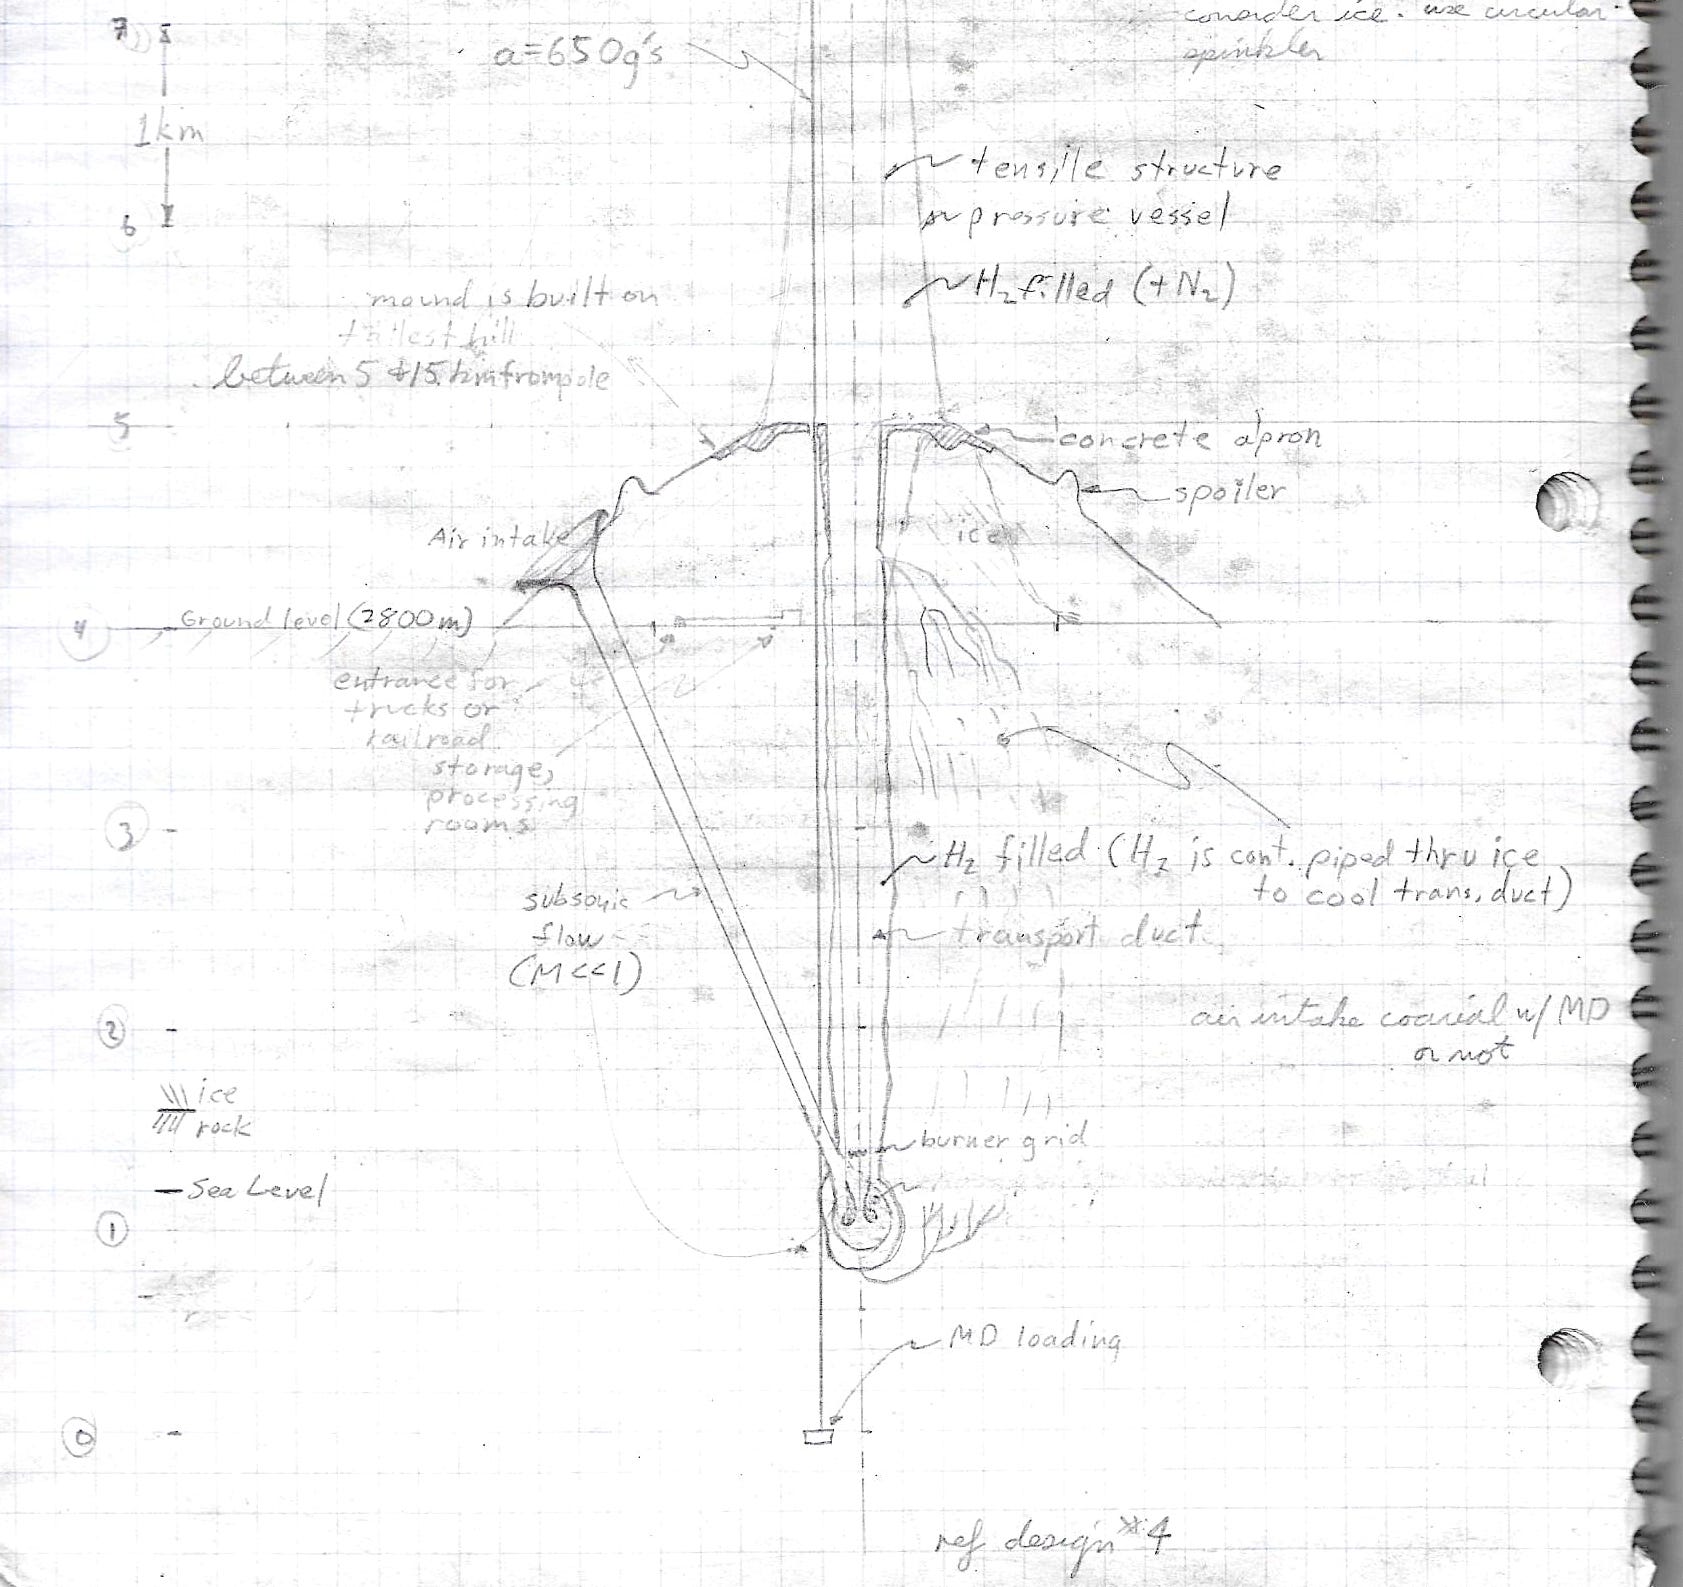 consider ice. use circular
spinkler
7
a=650g's
1km
tensile structure
6
pressure vessel
H₂ filled (+N₂)
mound is built on
tallest hill
between 5 & 15 km from pole
5
concrete apron
spoiler
Air intake
ice
4
Ground level (2800m)
entrance for
trucks or
railroad
storage,
processing
rooms
3
H₂ filled (H₂ is cont. piped thru ice
to cool trans. duct)
subsonic
flow
(M<<1)
transport duct
2
air intake coaxial w/ MD
or not
ice
rock
burner grid
Sea Level
1
MD loading
0
ref design #4